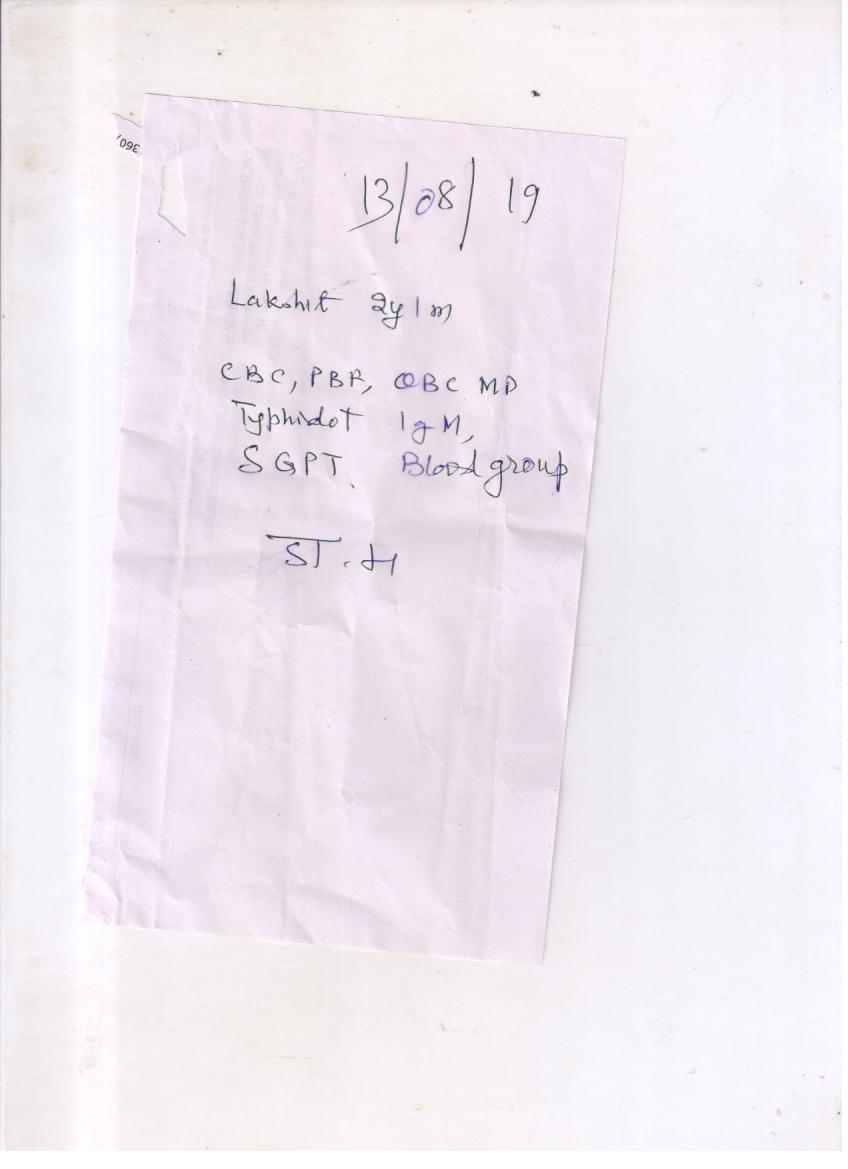 360,
13/08/19
Lakshit 2y/m
CBC, PBF, QBC MP
Typhidot IgM,
SGPT. Blood group
ST. H